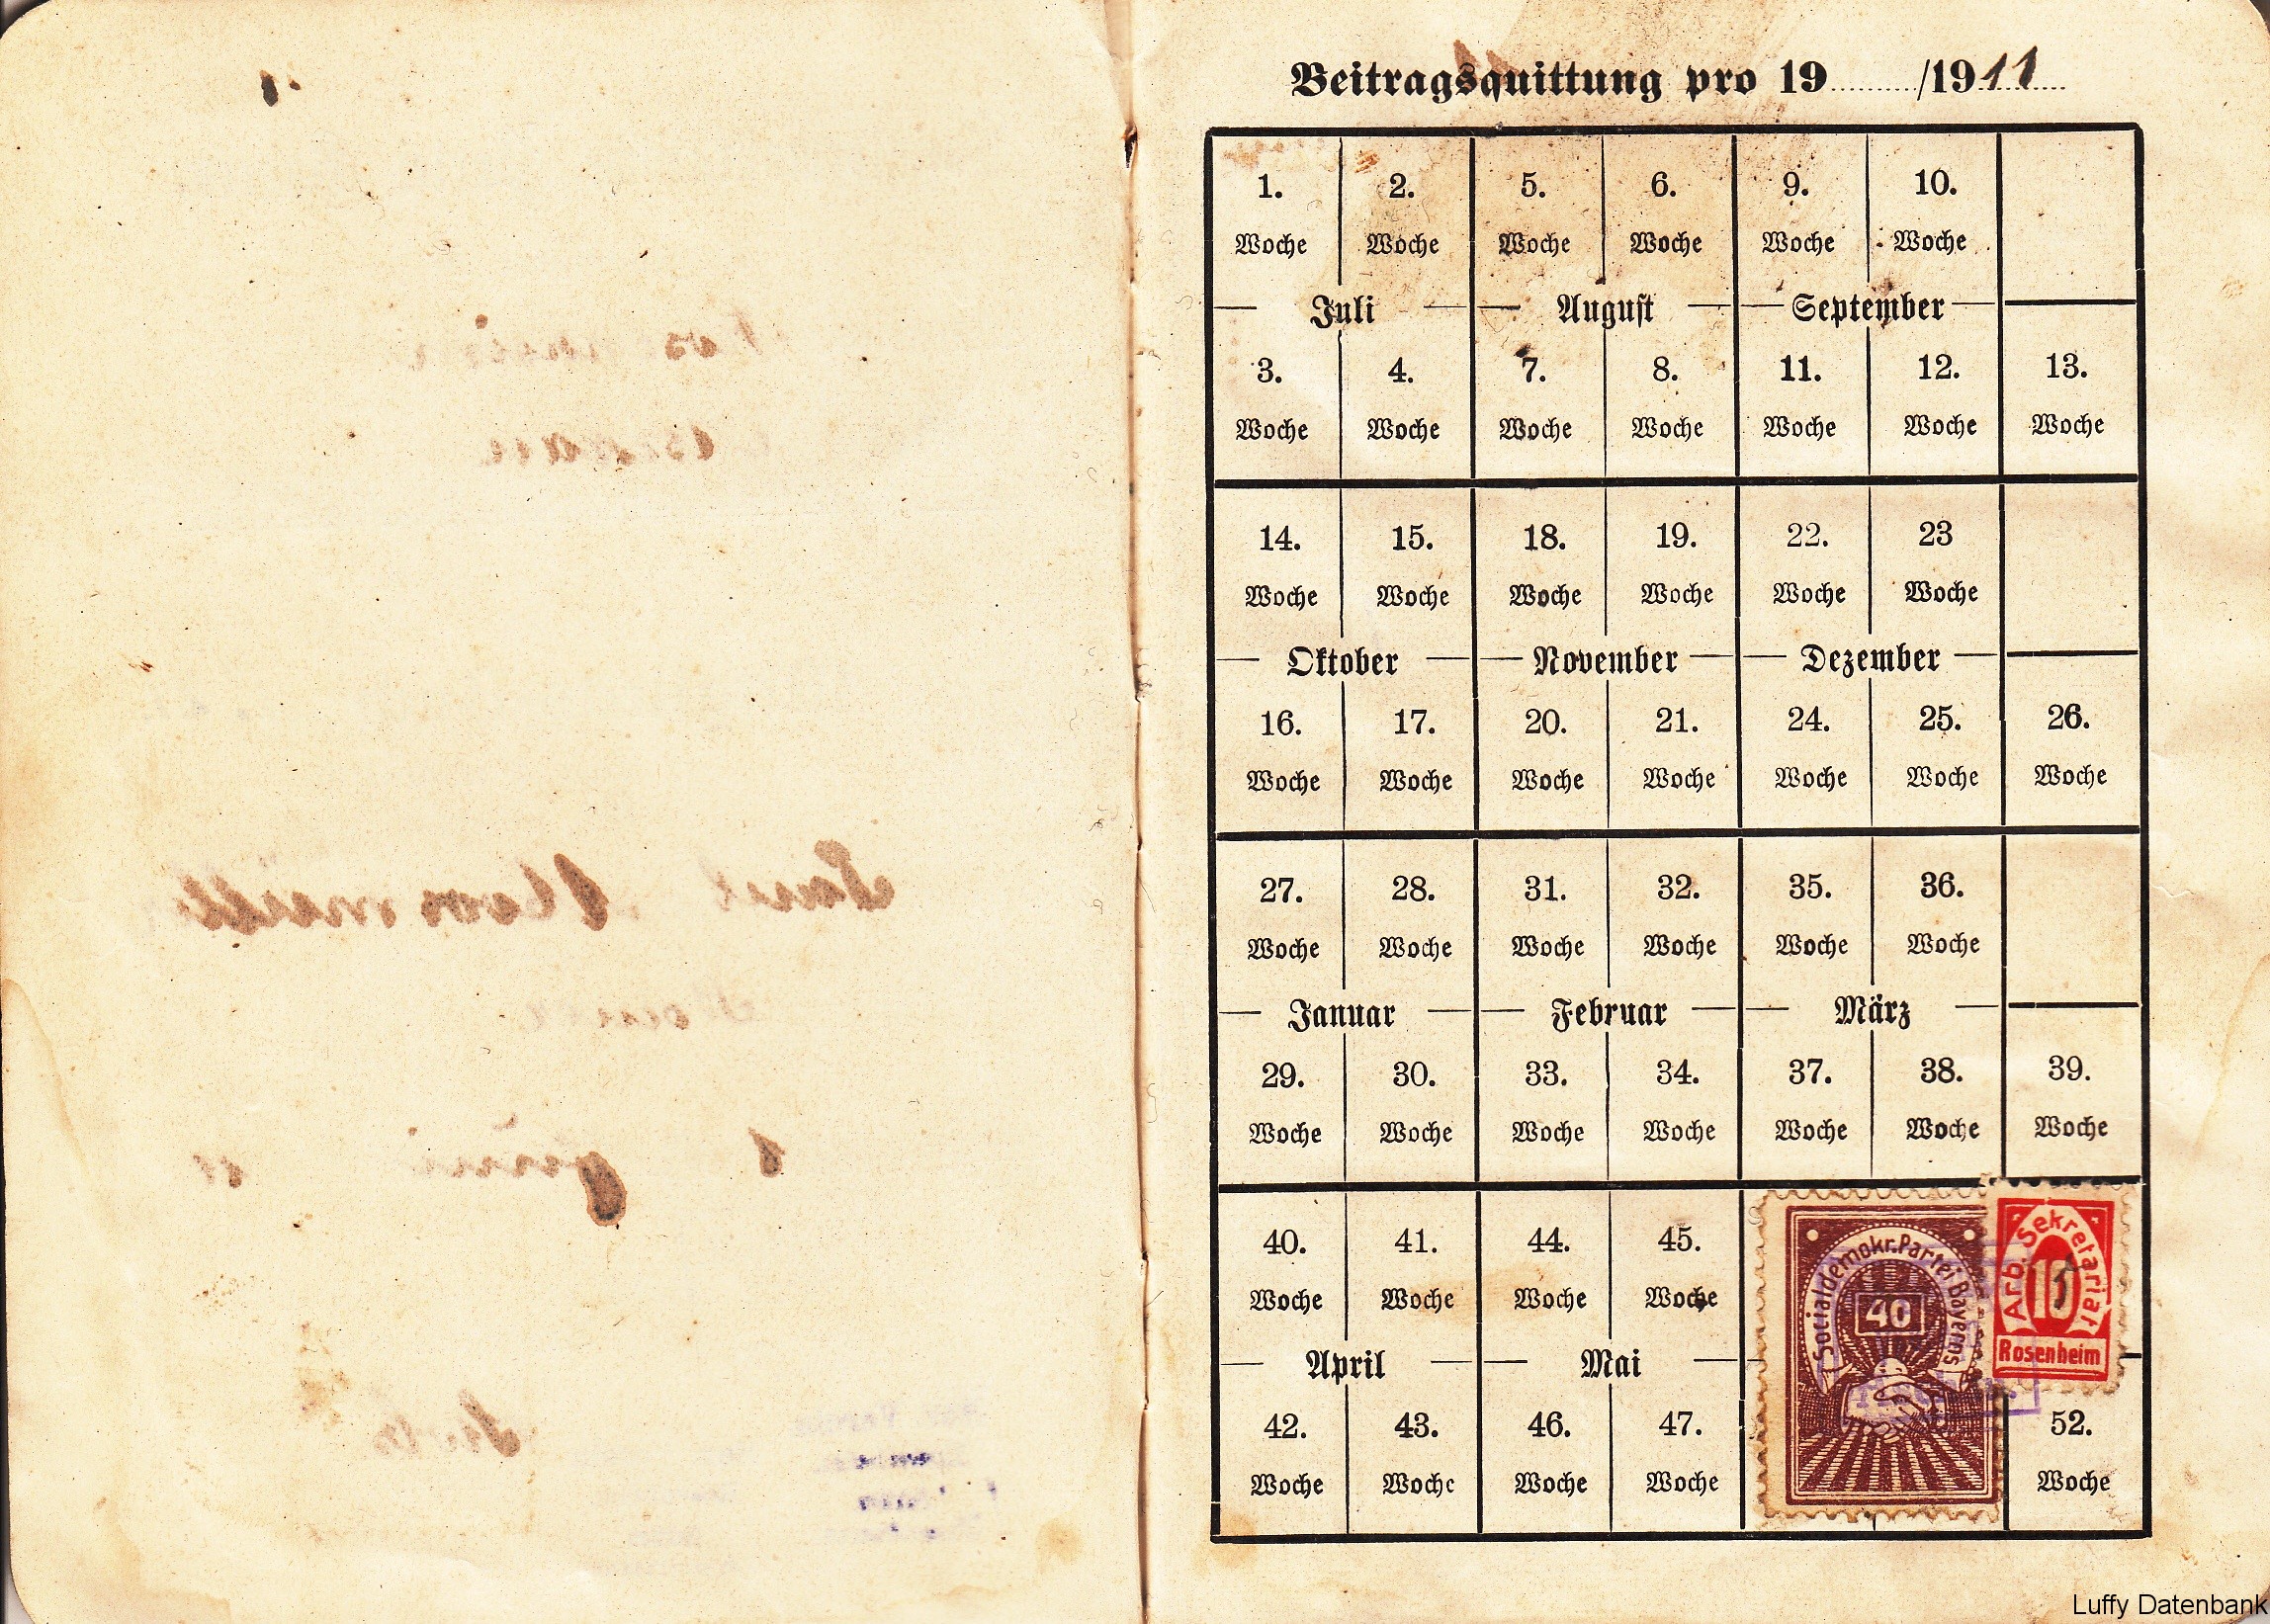 Beitragsquittung pro 19 /1911
1. 2. 5. 6. 9. 10.
Woche Woche Woche Woche Woche Woche
Juli August September
3. 4. 7. 8. 11. 12. 13.
Woche Woche Woche Woche Woche Woche Woche
14. 15. 18. 19. 22. 23
Woche Woche Woche Woche Woche Woche
Oktober November Dezember
16. 17. 20. 21. 24. 25. 26.
Woche Woche Woche Woche Woche Woche Woche
27. 28. 31. 32. 35. 36.
Woche Woche Woche Woche Woche Woche
Januar Februar März
29. 30. 33. 34. 37. 38. 39.
Woche Woche Woche Woche Woche Woche Woche
40. 41. 44. 45.
Woche Woche Woche Woche
April Mai
42. 43. 46. 47. 52.
Woche Woche Woche Woche Woche
Socialdemokr. Partei Bayerns
40
Arb. Sekretariat
Rosenheim
Luffy Datenbank